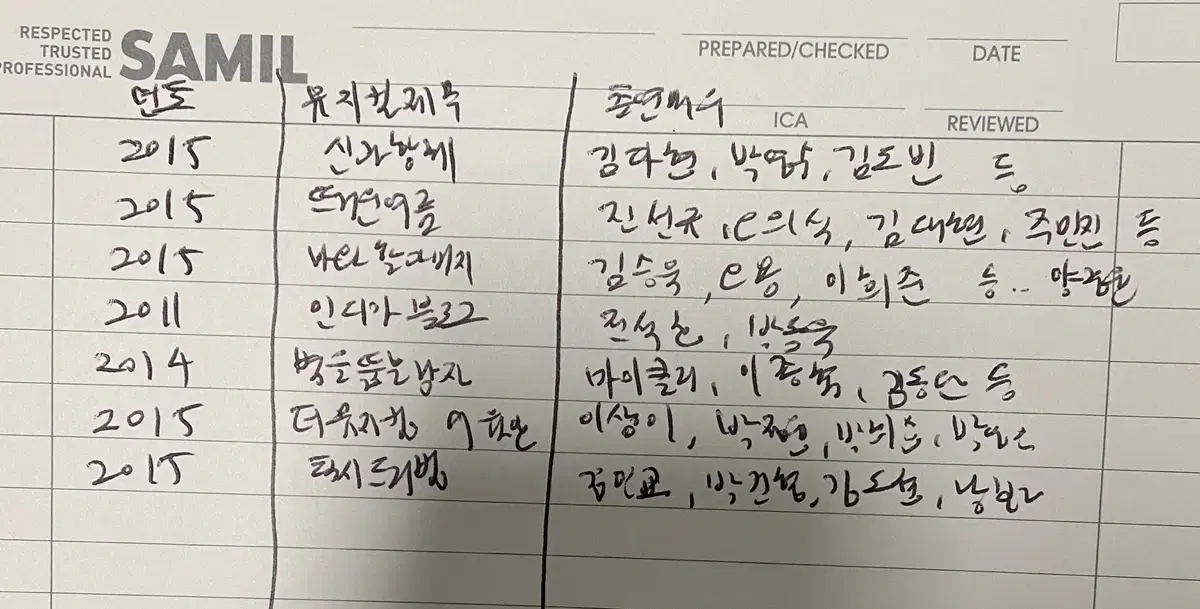 RESPECTED
TRUSTED
PROFESSIONAL
SAMIL
PREPARED/CHECKED DATE
ICA REVIEWED
년도 뮤지컬제목 출연배우
2015 신과함께 김다현, 박영수, 김도빈 등
2015 뜨거운여름 진선규, 이의식, 김대현, 주민진 등
2015 바람 할아버지 김승욱, 이용, 이희준 등..
2011 인디가 블로그 전석호, 박동욱
2014 벽을뚫는남자 마이클리, 이종혁, 김동완 등
2015 더뮤지컬 이상이,
2015 택시드리벌 김민교, 박건형, 김도현, 남보라